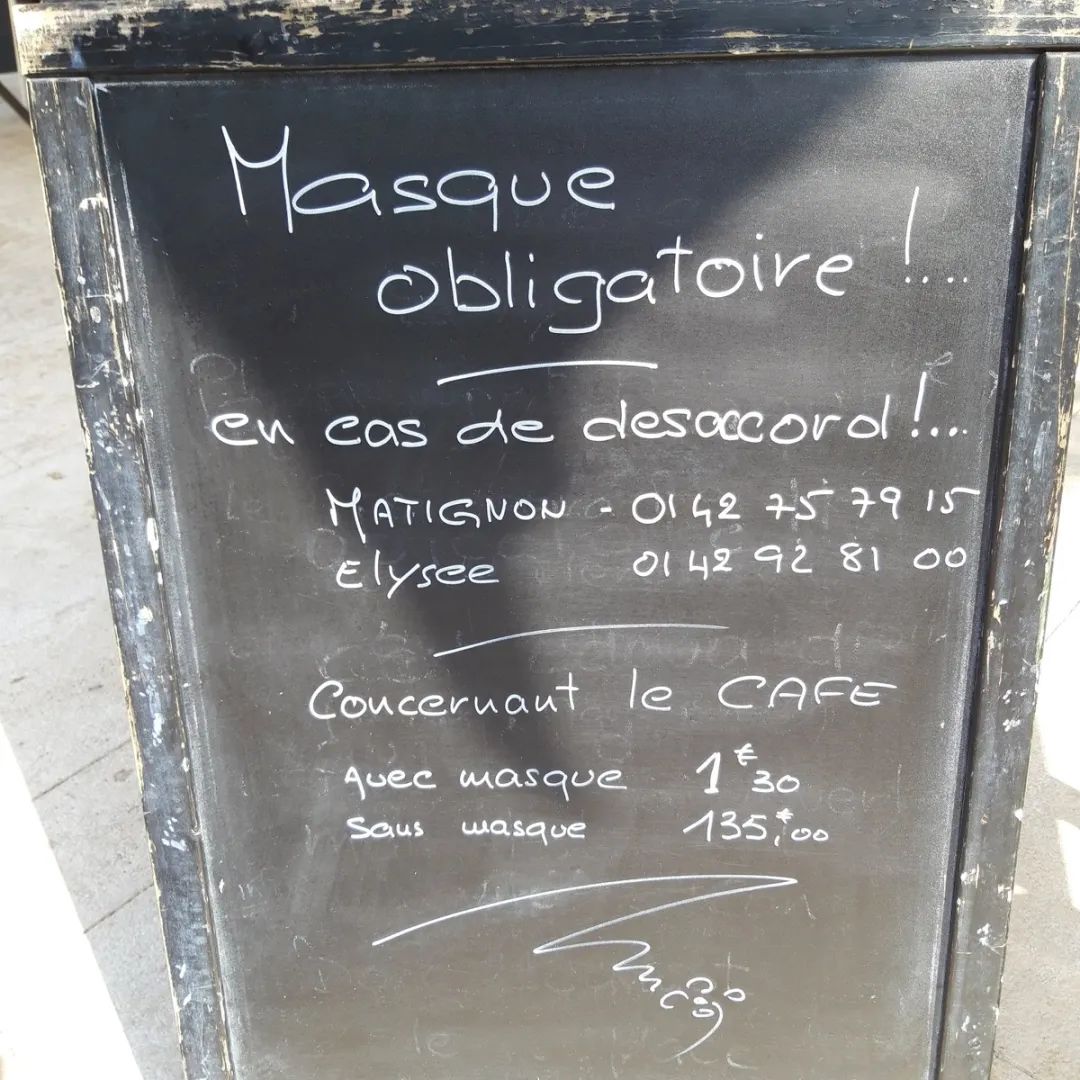 Masque
obligatoire !....
en cas de desaccord !...
MATIGNON - 01 42 75 79 15
Elysee 01 42 92 81 00
Concernant le CAFE
Avec masque 1€30
Sans masque 135,€00